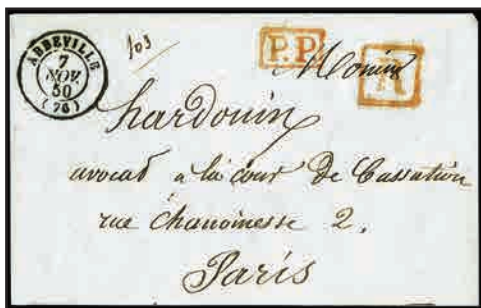 ABBEVILLE
7
NOV.
50
(76)
103
P.P.
R
Hardouin
avocat a la cour de Cassation
rue chanoinesse 2.
Paris